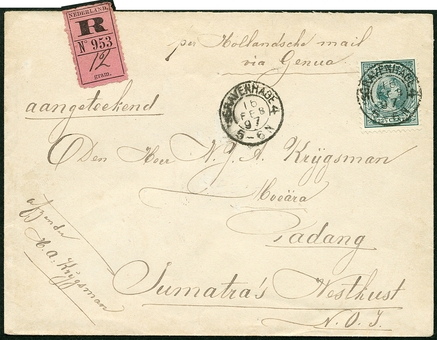 NEDERLAND.
R
No 953
12
gram.
per Hollandsche mail
via Genua
aangeteekend
'S GRAVENHAGE 4
16
FEB
97
5-6N
'S GRAVENHAGE 4
Den Heer N. J. A. Krijgsman
Moeära
Padang
Sumatra's Westkust
N.O.I.
afzender
H. A. Krijgsman